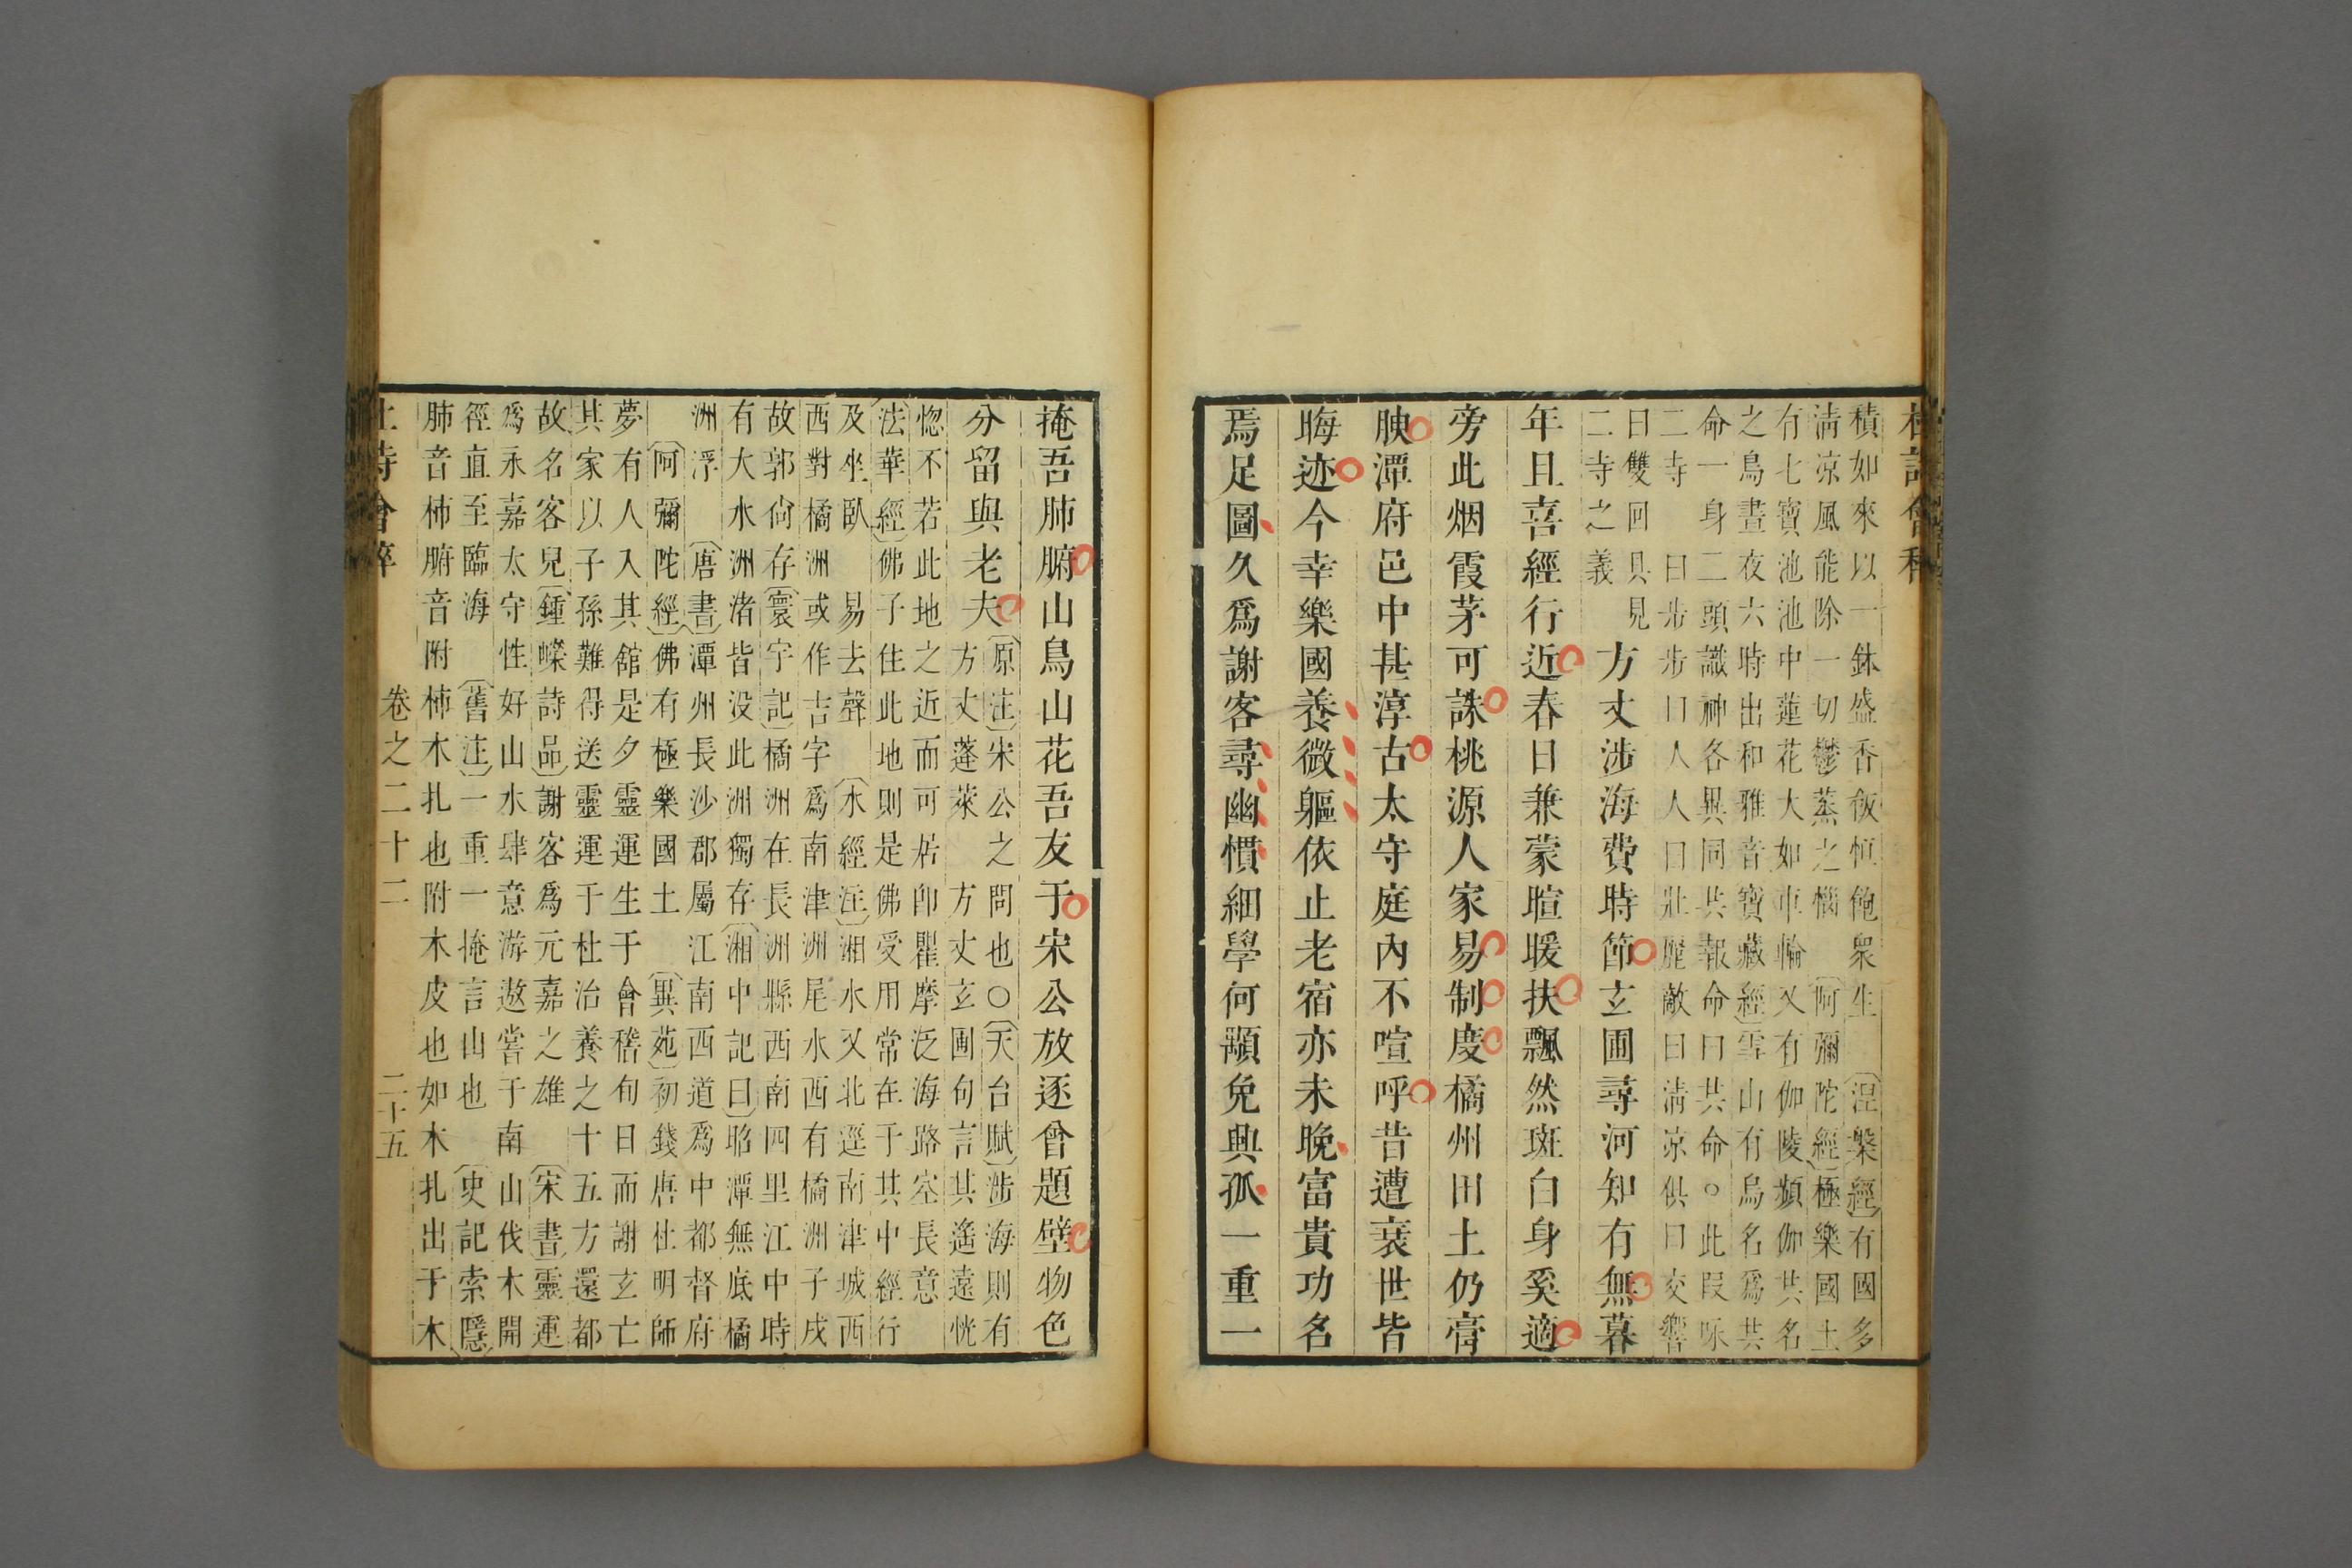 積如來以一鉢盛香飯恒飽衆生　涅槃經有國多
淸凉風能除一切鬱蒸之惱　阿彌陀經極樂國土
有七寶池池中蓮花大如車輪又有伽陵頻伽共名
之鳥晝夜六時出和雅音寶藏經雪山有鳥名爲共
命一身二頭識神各異同共報命曰共命○此叚咏
二寺　曰步步曰人人曰壯麗敵曰淸凉供曰交響
曰雙回具見
二寺之義
方丈涉海費時節玄圃尋河知有無暮
年且喜經行近春日兼蒙暄暖扶飄然斑白身奚適
旁此烟霞茅可誅桃源人家易制度橘州田土仍膏
腴潭府邑中甚淳古太守庭內不喧呼昔遭衰世皆
晦迹今幸樂國養微軀依止老宿亦未晚富貴功名
焉足圖久爲謝客尋幽慣細學何顒免興孤一重一
掩吾肺腑山鳥山花吾友于宋公放逐曾題壁物色
分留與老夫
原注宋公之問也○天台賦涉海則有
方丈蓬萊　方丈玄圃句言其遙遠恍
惚不若此地之近而可居卽瞿摩泛海路空長意
法華經佛子住此地則是佛受用常在于其中經行
及坐臥　易去聲　水經注湘水又北逕南津城西
西對橘洲或作吉字爲南津洲尾水西有橘洲子戍
故郭尙存寰宇記橘洲在長洲縣西南四里江中時
有大水洲渚皆没此洲獨存湘中記曰昭潭無底橘
洲浮　唐書潭州長沙郡屬江南西道爲中都督府
阿彌陀經佛有極樂國土　異苑初錢唐杜明師
夢有人入其館是夕靈運生于會稽旬日而謝玄亡
其家以子孫難得送靈運于杜治養之十五方還都
故名客兒鍾嶸詩品謝客爲元嘉之雄　宋書靈運
爲永嘉太守性好山水肆意游遨嘗于南山伐木開
徑直至臨海　舊注一重一掩言山也　史記索隱
肺音柿腑音附柿木札也附木皮也如木札出于木
卷之二十二　二十五